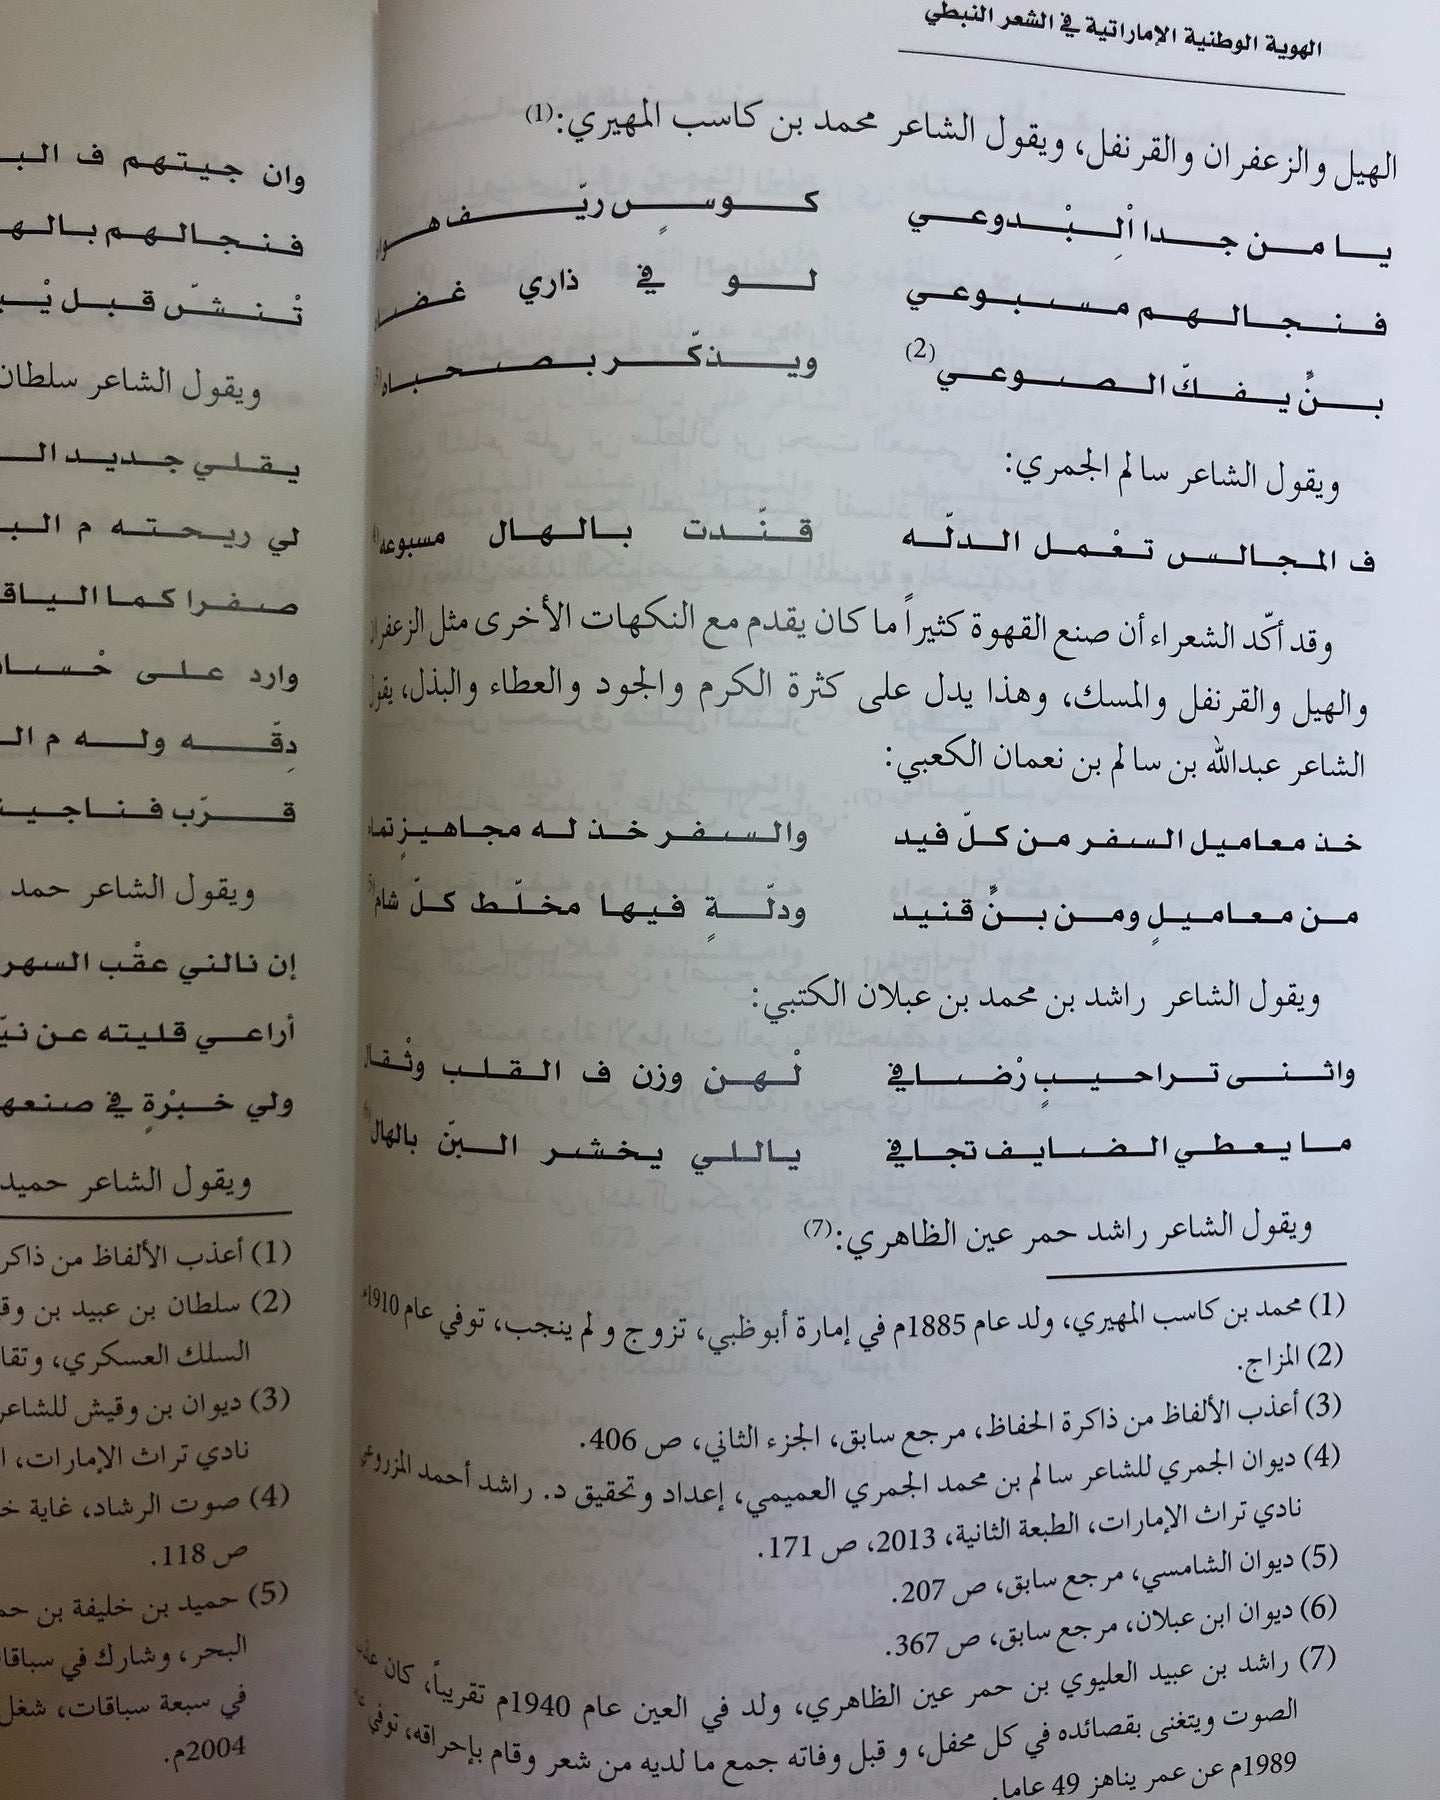 الهوية الوطنية الإماراتية في الشعر النبطي
الهيل والزعفران والقرنفل، ويقول الشاعر محمد بن كاسب المهيري:(1)
يا من جدا اْلِبْدوعي كوسٍ ريّف هواه
فنجالهم مسبوعي لو في ذاري غضاه
بنٍّ يفكّ الصوعي(2) ويذكّر بصحباه(3)
ويقول الشاعر سالم الجمري:
ف المجالس تعْمل الدلّه قنّدت بالهال مسبوعه(4)
وقد أكّد الشعراء أن صنع القهوة كثيراً ما كان يقدم مع النكهات الأخرى مثل الزعفران
والهيل والقرنفل والمسك، وهذا يدل على كثرة الكرم والجود والعطاء والبذل، يقول
الشاعر عبدالله بن سالم بن نعمان الكعبي:
خذ معاميل السفر من كلّ فيد والسفر خذ له مجاهيزٍ تمام
من معاميلٍ ومن بنٍّ قنيد ودلّةٍ فيها مخلّط كلّ شام(5)
ويقول الشاعر راشد بن محمد بن عبلان الكتبي:
واثنى تراحيبٍ رْضافي لْهن وزن ف القلب وثْقال
ما يعطي الضايف تجافي ياللي يخشر البنّ بالهال(6)
ويقول الشاعر راشد حمر عين الظاهري:(7)
(1) محمد بن كاسب المهيري، ولد عام 1885م في إمارة أبوظبي، تزوج ولم ينجب، توفي عام 1910م
(2) المزاج.
(3) أعذب الألفاظ من ذاكرة الحفاظ، مرجع سابق، الجزء الثاني، ص 406.
(4) ديوان الجمري للشاعر سالم بن محمد الجمري العميمي، إعداد وتحقيق د. راشد أحمد المزروعي
نادي تراث الإمارات، الطبعة الثانية، 2013، ص 171.
(5) ديوان الشامسي، مرجع سابق، ص 207.
(6) ديوان ابن عبلان، مرجع سابق، ص 367.
(7) راشد بن عبيد العليوي بن حمر عين الظاهري، ولد في العين عام 1940م تقريباً، كان عذب
الصوت ويتغنى بقصائده في كل محفل، و قبل وفاته جمع ما لديه من شعر وقام بإحراقه، توفي
1989م عن عمر يناهز 49 عاما.
وان جيتهم ف
فنجالهم
تْنشّ قبل
ويقول الشاعر سلطان
يقلي جديد
لي ريحته م
صفرا كما
وارد على
دِقّه وله م
قرّب
ويقول الشاعر حمد
إن نالني عقْب السهر
أراعي قليته عن
ولي خبْرةٍ في
ويقول الشاعر حميد
(1) أعذب الألفاظ من
(2) سلطان بن عبيد بن
السلك العسكري،
(3) ديوان بن وقيش للشاعر
نادي تراث الإمارات،
(4) صوت الرشاد، غاية
ص 118.
(5) حميد بن خليفة بن
البحر، وشارك في
في سبعة سباقات، شغل
2004م.